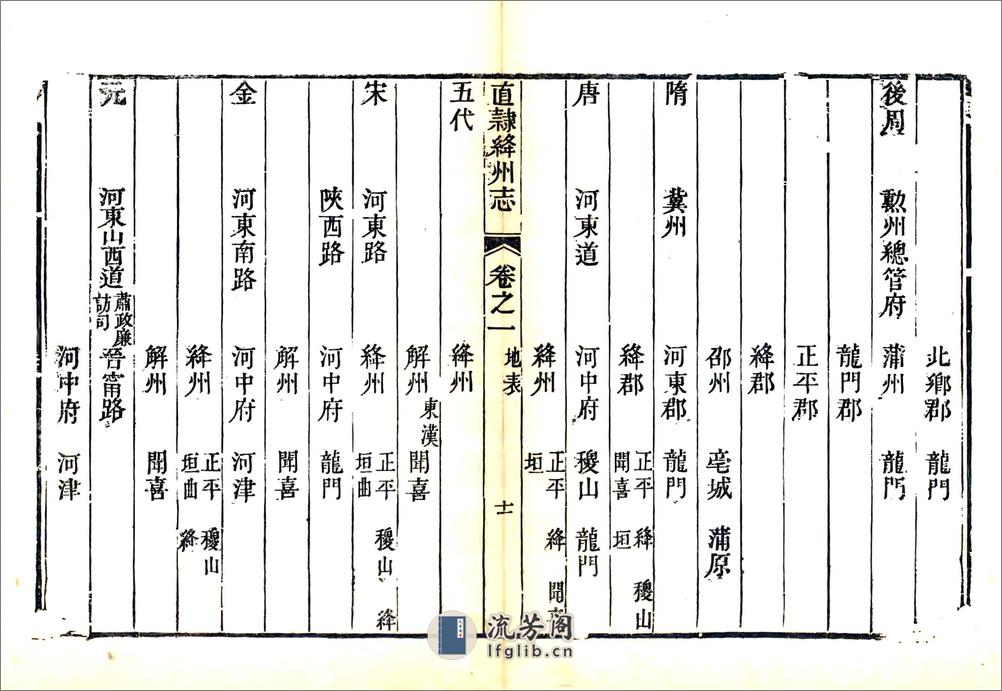 北鄉郡 龍門
後周 勲州總管府 蒲州 龍門
龍門郡
正平郡
絳郡
邵州 亳城 蒲原
隋 冀州 河東郡 龍門
絳郡 正平 絳 稷山 聞喜 垣
唐 河東道 河中府 稷山 龍門
絳州 正平 絳 聞喜 垣
直隸絳州志 卷之一 地表 十一
五代 絳州
解州 東漢 聞喜
宋 河東路 絳州 正平 稷山 絳 垣曲
陝西路 河中府 龍門
解州 聞喜
金 河東南路 河中府 河津
絳州 正平 稷山 垣曲 絳
解州 聞喜
元 河東山西道 肅政廉訪司 晉甯路
河中府 河津
流芳阁
lfglib.cn